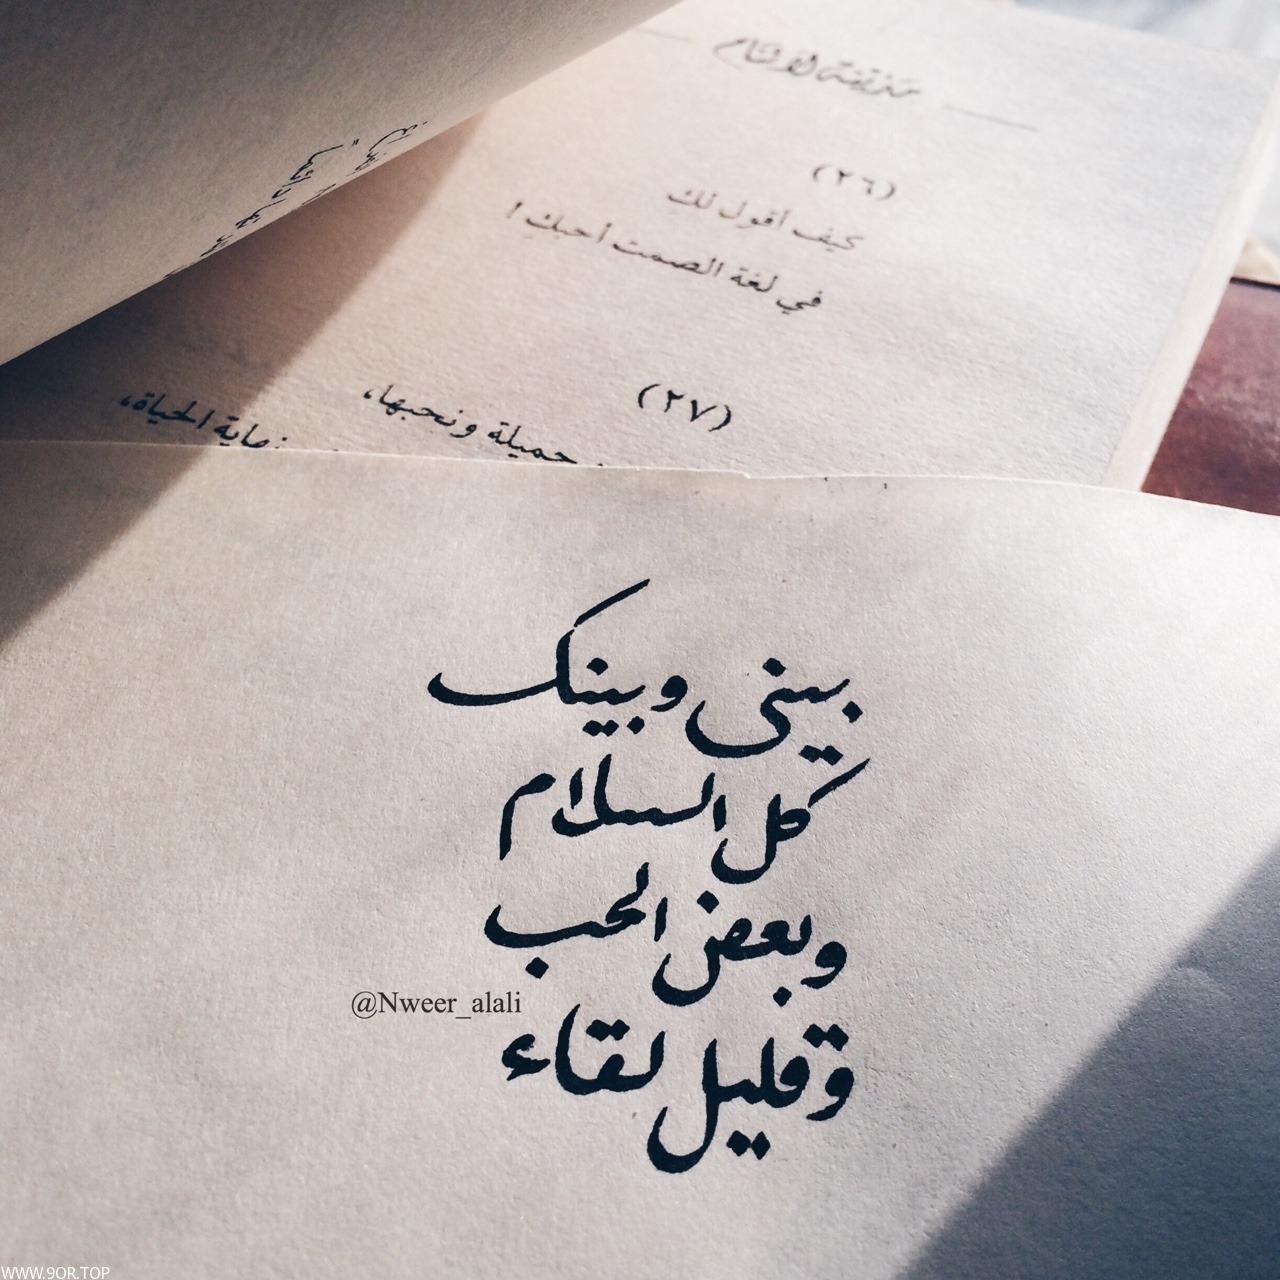 (٢٦)
كيف أقول لك
في لغة الصمت أحبك !
(٢٧)
جميلة ونحبها،
الحياة،
بيني وبينك
كل السلام
وبعض الحب
@Nweer_alali
وقليل لقاء
WWW.9OR.TOP